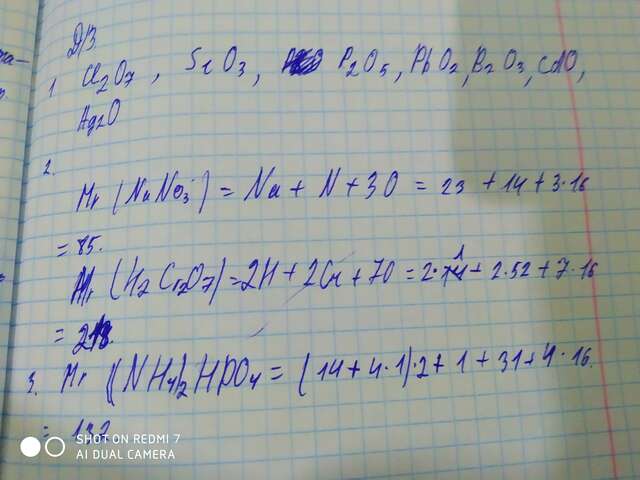 Д/З
1. Cl2O7, SiO3, P2O5, PbO2, B2O3, CdO,
Ag2O
2.
Mr (NaNO3) = Na + N + 3O = 23 + 14 + 3·16
= 85.
Mr (H2Cr2O7) = 2H + 2Cr + 7O = 2·1 + 2·52 + 7·16
= 218.
3. Mr ((NH4)2HPO4 = (14 + 4·1)·2 + 1 + 31 + 4·16.
= 132
SHOT ON REDMI 7
AI DUAL CAMERA